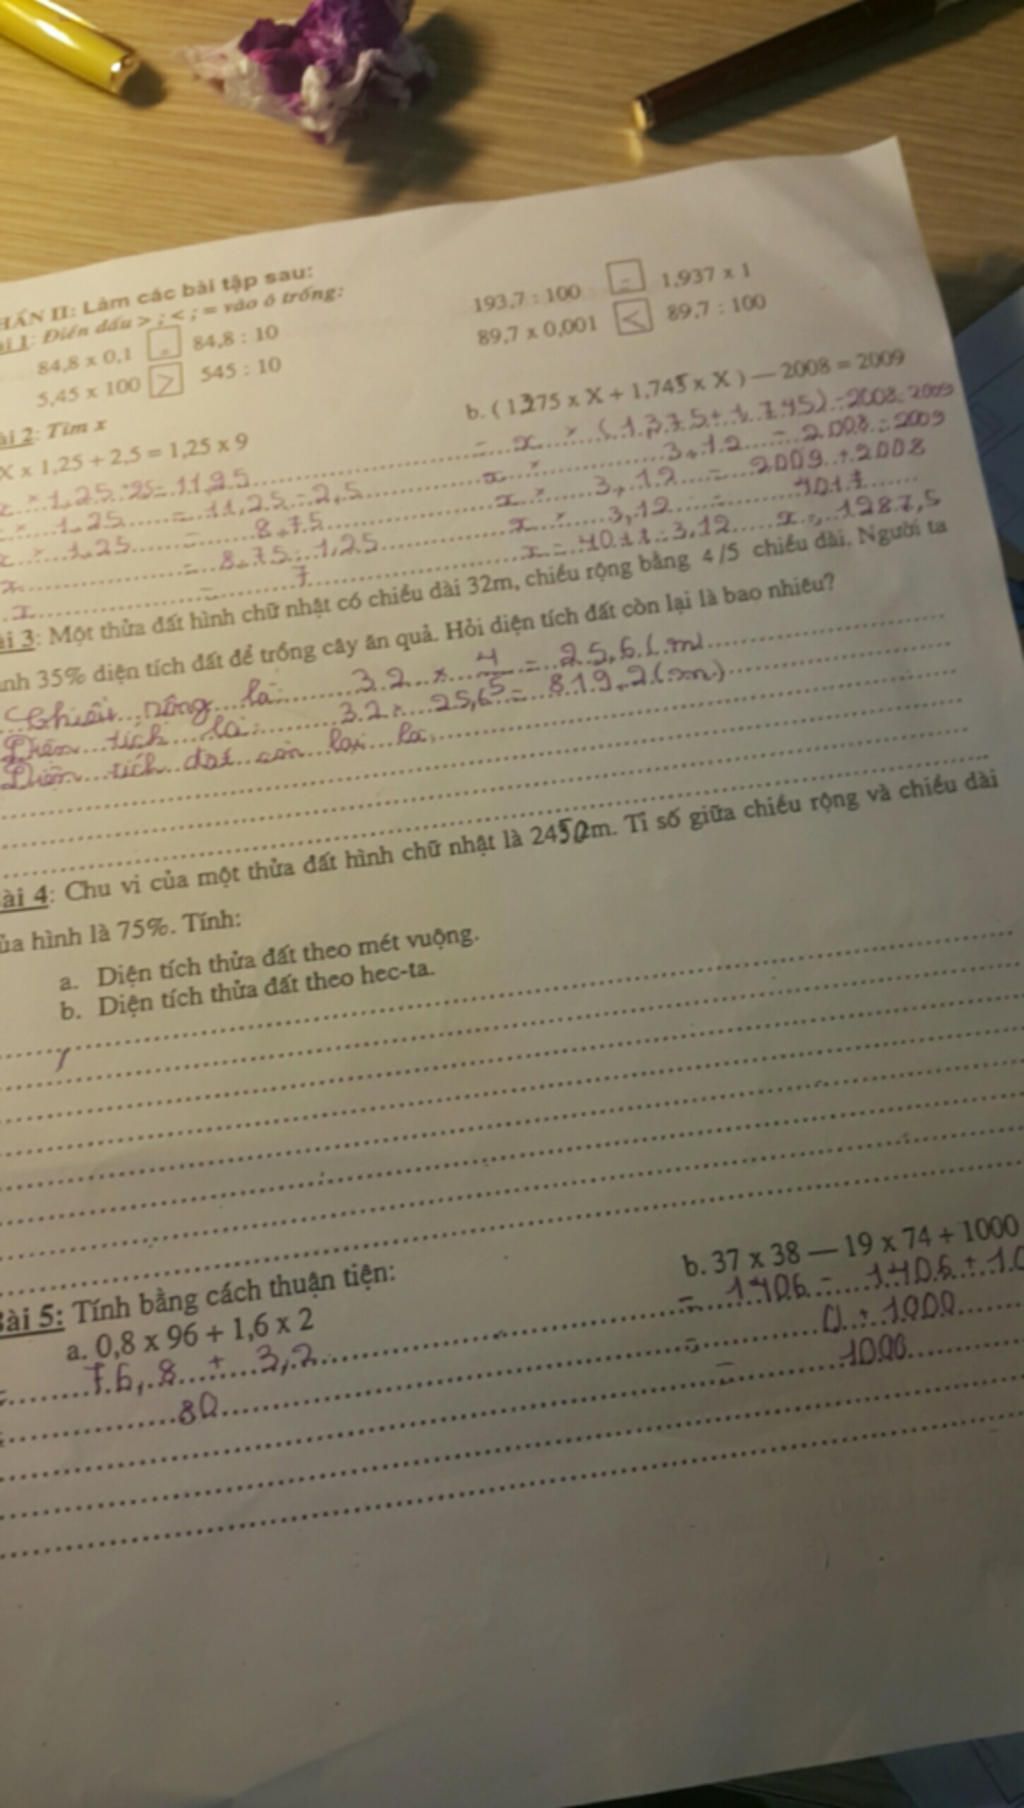 HẦN II: Làm các bài tập sau:
ài 1: Điền dấu > ; < ; = vào ô trống:
84,8 x 0,1 = 84,8 : 10
193,7 : 100 = 1,937 x 1
5,45 x 100 > 545 : 10
89,7 x 0,001 < 89,7 : 100
ài 2: Tìm x
X x 1,25 + 2,5 = 1,25 x 9
b. ( 1,375 x X + 1,745 x X ) — 2008 = 2009
x × 1,25 + 2,5 = 11,25
= x × (1,375 + 1,745) - 2008 = 2009
x × 1,25 = 11,25 - 2,5
x × 3,12 - 2008 = 2009
x × 1,25 = 8,75
x × 3,12 = 2009 + 2008
x = 8,75 : 1,25
x × 3,12 = 4017
x = 7
x = 4017 : 3,12 x = 1287,5
ài 3: Một thửa đất hình chữ nhật có chiều dài 32m, chiều rộng bằng 4/5 chiều dài. Người ta
ành 35% diện tích đất để trồng cây ăn quả. Hỏi diện tích đất còn lại là bao nhiêu?
Chiều rộng là: 32 × 4/5 = 25,6 (m)
Diện tích là: 32 × 25,6 = 819,2 (m)
Diện tích đất còn lại là:
ài 4: Chu vi của một thửa đất hình chữ nhật là 2450m. Tỉ số giữa chiều rộng và chiều dài
ủa hình là 75%. Tính:
a. Diện tích thửa đất theo mét vuông.
b. Diện tích thửa đất theo hec-ta.
Bài 5: Tính bằng cách thuận tiện:
a. 0,8 x 96 + 1,6 x 2
b. 37 x 38 — 19 x 74 + 1000
= 76,8 + 3,2
= 1406 - 1406 + 10
= 80
= 0 + 1000
= 1000